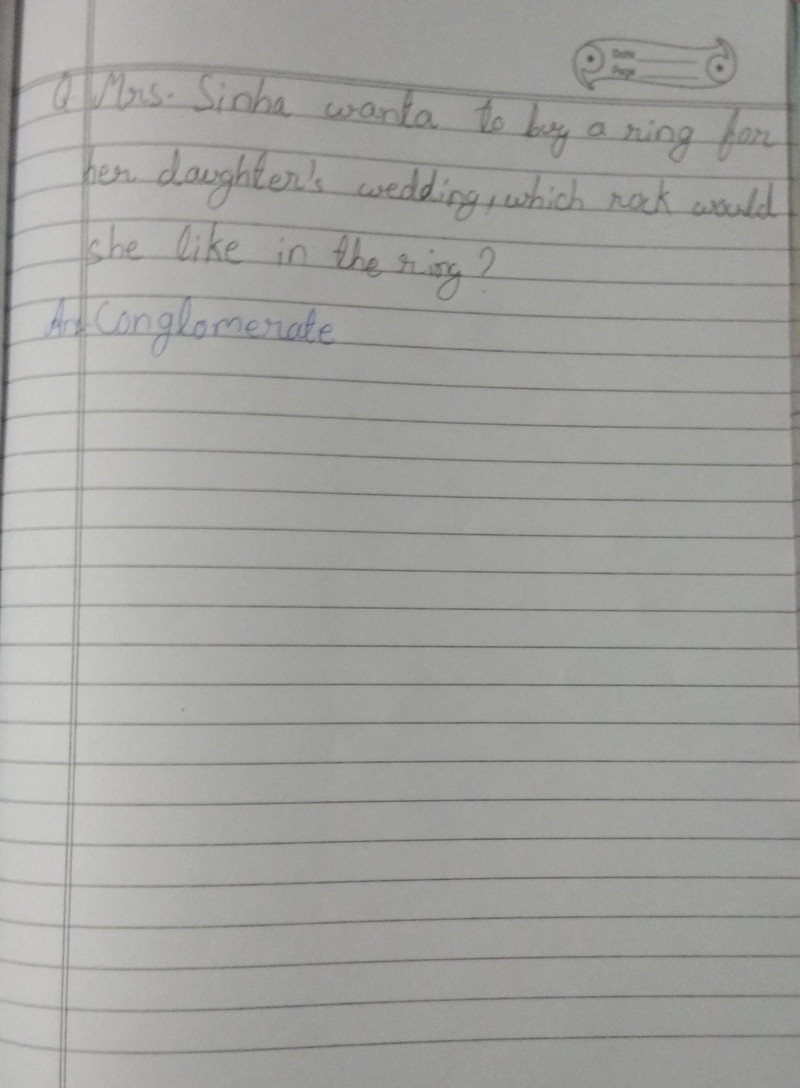 Date
Page
Q. Mrs. Sinha wanta to buy a ring for
her daughter's wedding, which rock would
she like in the ring?
Ans Conglomerate